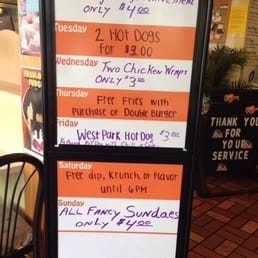 ONLY $4.00
Tuesday
2 HOT DOGS
FOR $3.00
Wednesday
TWO CHICKEN WRAPS
ONLY $3.00
Thursday
FREE FRIES WITH
PURCHASE OF DOUBLE BURGER
Friday
WEST PARK HOT DOG $3.00
Saturday
FREE DIP, KRUNCH, OR FLAVOR
UNTIL 6PM
Sunday
ALL FANCY SUNDAES
ONLY $4.00
THANK YOU
FOR
YOUR
SERVICE